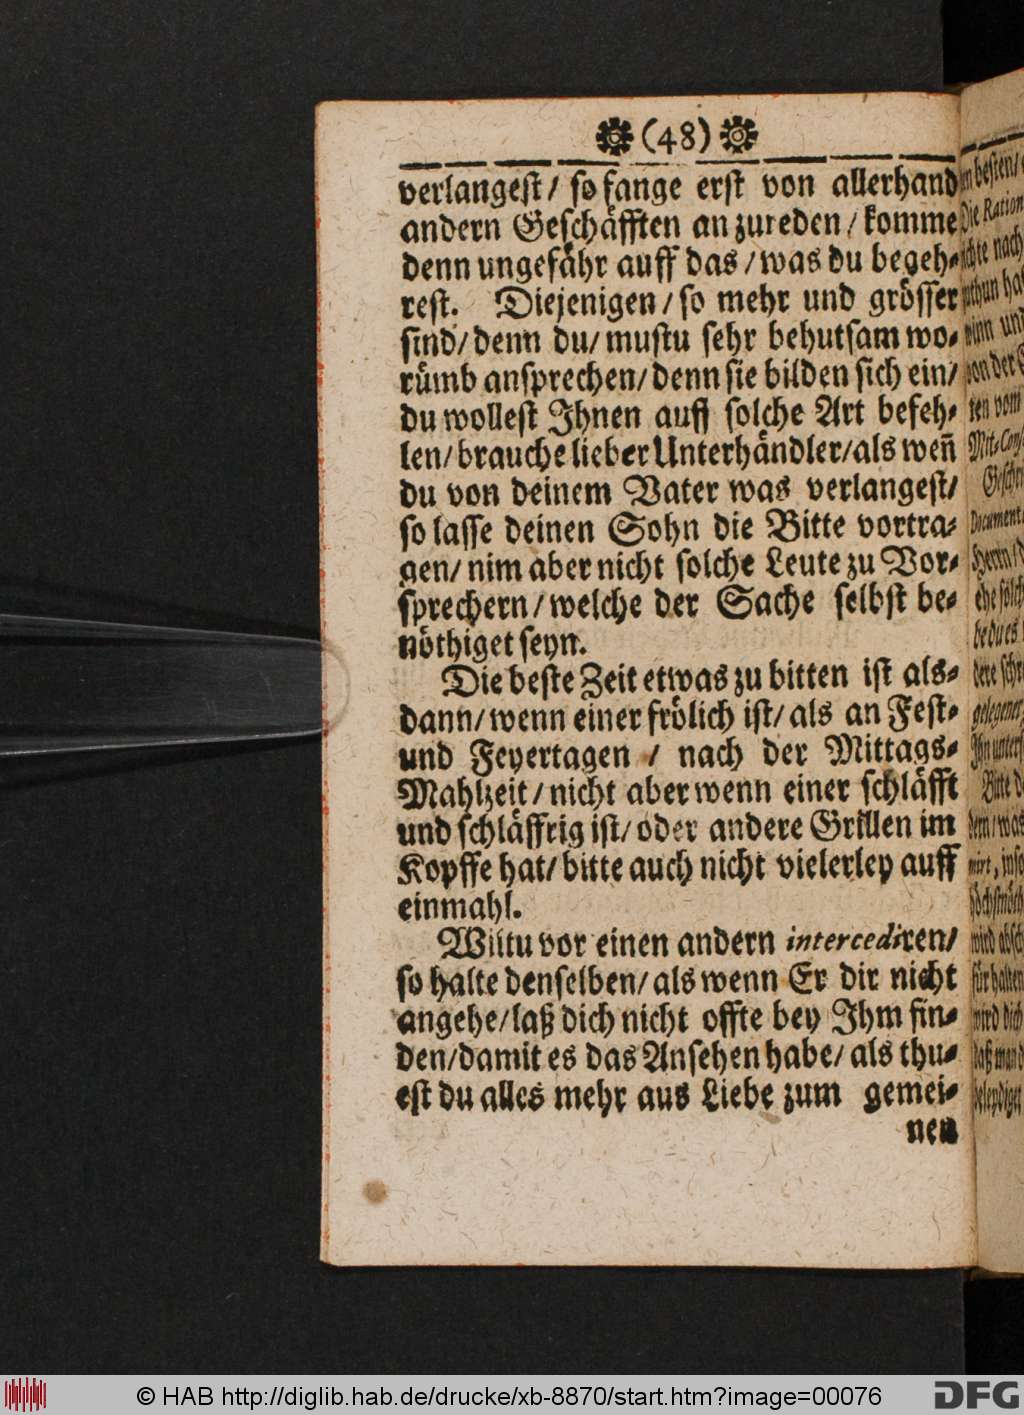 (48)
verlangest/ so fange erst von allerhand
andern Geschäfften an zu reden/ komme
denn ungefähr auff das/ was du begeh-
rest. Diejenigen/ so mehr und grösser
sind/ denn du/ mustu sehr behutsam wo-
rümb ansprechen/ denn sie bilden sich ein/
du wollest Ihnen auff solche Art befeh-
len/ brauche lieber Unterhändler/ als weñ
du von deinem Vater was verlangest/
so lasse deinen Sohn die Bitte vortra-
gen/ nim aber nicht solche Leute zu Vor-
sprechern/ welche der Sache selbst be-
nöthiget seyn.
Die beste Zeit etwas zu bitten ist als-
dann/ wenn einer frölich ist/ als an Fest-
und Feyertagen / nach der Mittags-
Mahlzeit/ nicht aber wenn einer schläfft
und schläffrig ist/ oder andere Grillen im
Kopffe hat/ bitte auch nicht vielerley auff
einmahl.
Wiltu vor einen andern intercediren/
so halte denselben/ als wenn Er dir nicht
angehe/ laß dich nicht offte bey Ihm fin-
den/ damit es das Ansehen habe/ als thu-
est du alles mehr aus Liebe zum gemei-
nen
besten/
Die Ration
nach
und
von der
ten vom
Document
Herrn
gelegener
Bitte
wird dich
© HAB http://diglib.hab.de/drucke/xb-8870/start.htm?image=00076
DFG